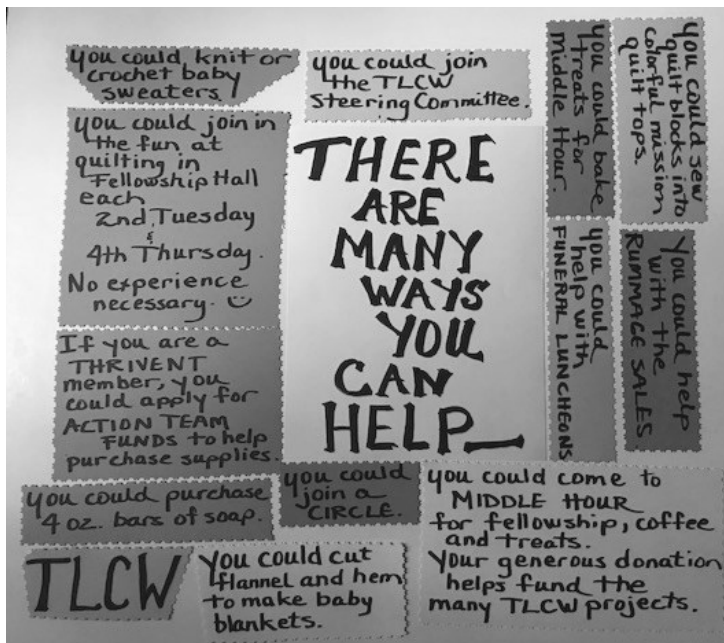 you could knit or
crochet baby
sweaters
you could join
the TLCW
Steering Committee.
you could bake
treats for
Middle Hour.
You could sew
quilt blocks into
colorful mission
quilt tops.
you could join in
the fun at
quilting in
Fellowship Hall
each
2nd Tuesday
&
4th Thursday.
No experience
necessary. ☺
THERE
ARE
MANY
WAYS
YOU
CAN
HELP_
you could
help with
FUNERAL LUNCHEONS
You could help
with the
RUMMAGE SALES
If you are a
THRIVENT
member, you
could apply for
ACTION TEAM
FUNDS to help
purchase supplies.
you could purchase
4 oz. bars of soap.
you could
join a
CIRCLE.
you could come to
MIDDLE HOUR
for fellowship, coffee
and treats.
Your generous donation
helps fund the
many TLCW projects.
TLCW
You could cut
flannel and hem
to make baby
blankets.